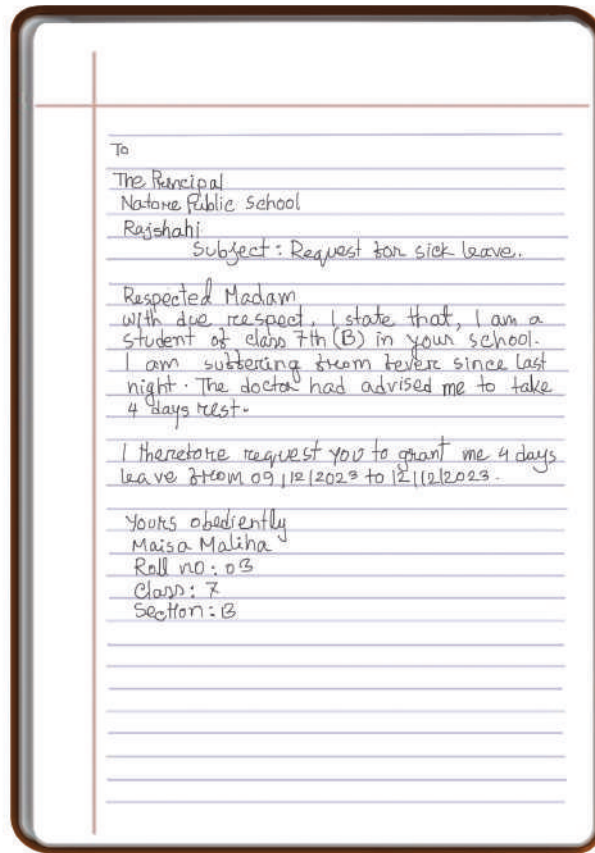 To
The Principal
Natore Public School
Rajshahi
Subject: Request for sick leave.
Respected Madam
With due respect, I state that, I am a
student of class 7th (B) in your school.
I am suffering from fever since last
night. The doctor had advised me to take
4 days rest.
I therefore request you to grant me 4 days
leave from 09/12/2023 to 12/12/2023.
Yours obediently
Maisa Maliha
Roll no: 03
Class: 7
Section: B